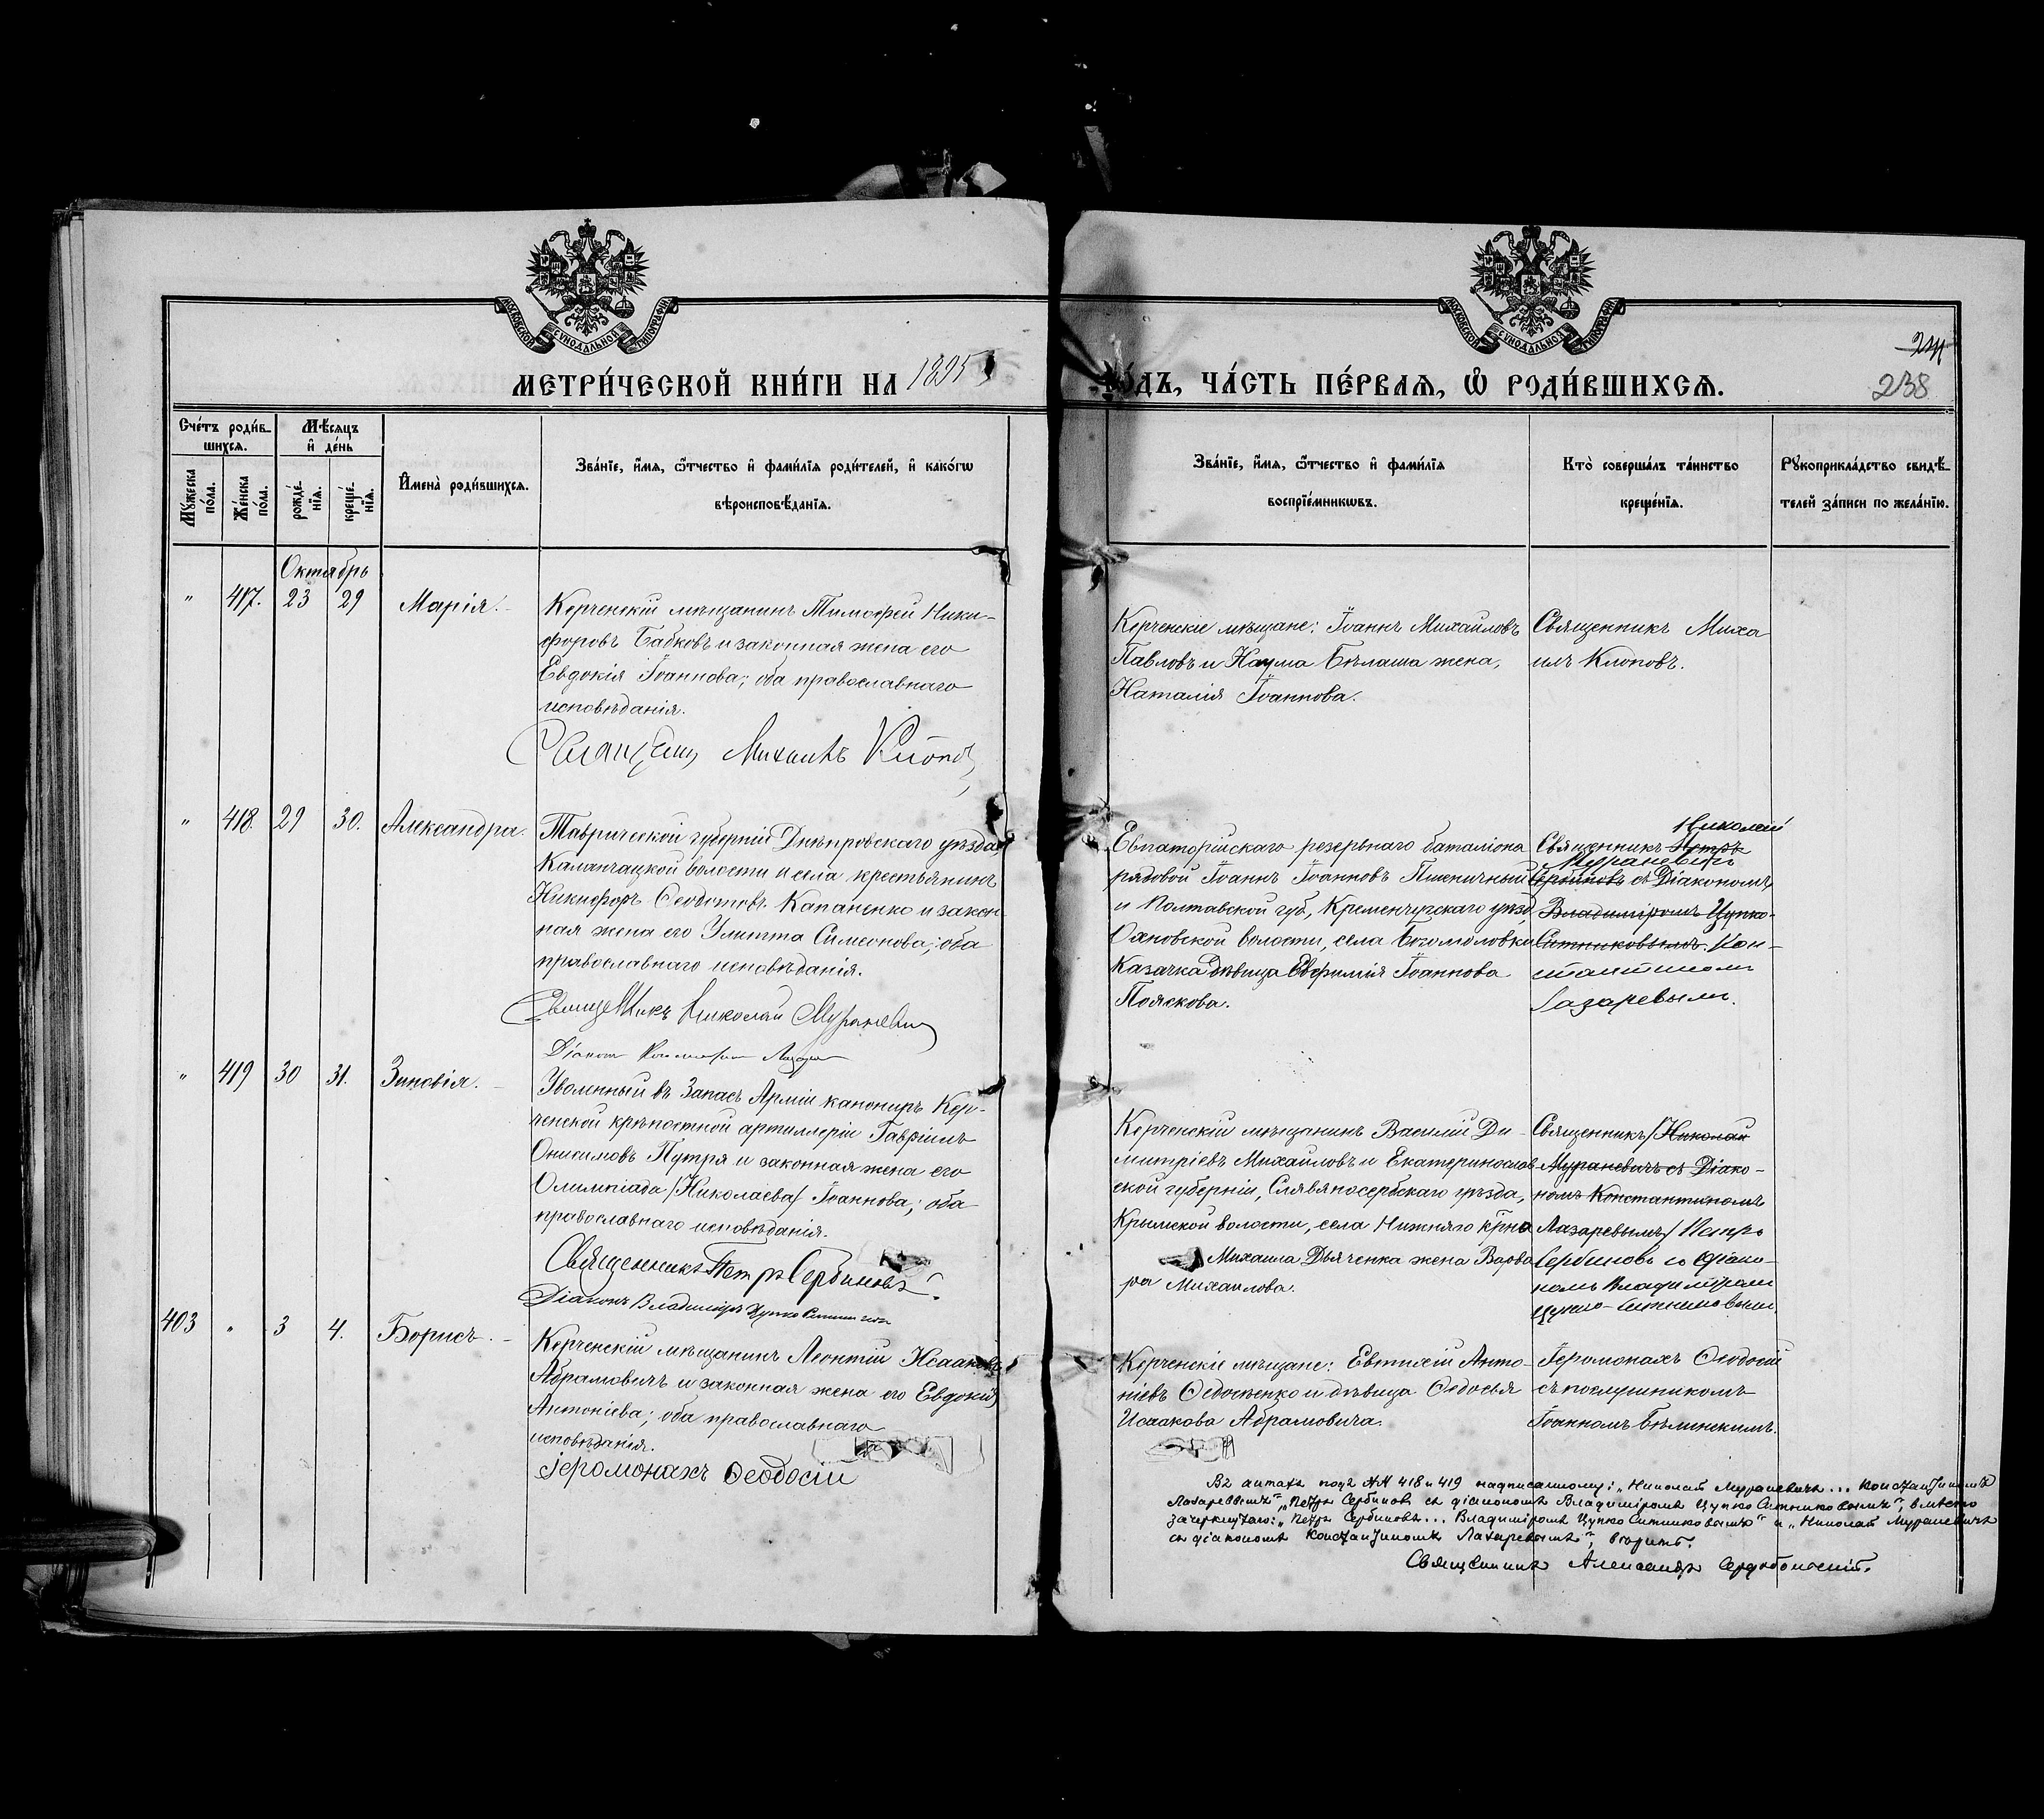 МОСКОВСКОЙ СУНОДАЛЬНОЙ ТИПОГРАФІИ
МОСКОВСКОЙ СУНОДАЛЬНОЙ ТИПОГРАФІИ
238
МЕТРИ́ЧЕСКОЙ КНИ́ГИ НА 1895
ГО́ДЪ, ЧА́СТЬ ПЕ́РВАЯ, Ѡ РОДИ́ВШИХСЯ.
Сче́тъ роди́в-
шихся.
Мѣ́сяцъ
и҆ де́нь
Мꙋ́жеска
по́ла.
Же́нска
по́ла.
рожде́-
нїя.
креще́-
нїя.
И҆мена̀ роди́вшихся.
Зва́нїе, и҆́мя, ѻ҆́тчество и҆ фами́лїя роди́телей, и҆ како́гѡ
вѣроисповѣ́данїя.
Зва́нїе, и҆́мя, ѻ҆́тчество и҆ фами́лїя
воспрїе́мникѡвъ.
Кто̀ соверша́лъ та́инство
креще́нїя.
Рꙋкоприкла́дство свидѣ́-
телей за́писи по жела́нїю.
Октябрь
" 417. 23 29 Марія.
Керченскій мѣщанинъ Тимофей Ники-
форовъ Бабковъ и законная жена его
Евдокія Іоаннова; оба православнаго
исповѣданія.
Священникъ Михаилъ Клоповъ
Керченскіе мѣщане: Іоаннъ Михайловъ
Павловъ и Наума Бѣлаша жена,
Наталія Іоаннова.
Священникъ Миха
илъ Клоповъ.
" 418. 29 30. Александра.
Таврической губерніи Днѣпровскаго уѣзда
Каланчацкой волости и села крестьянинъ
Никифоръ Ѳеодотовъ Капаненко и закон-
ная жена его Улитта Симеонова; оба
православнаго исповѣданія.
Священникъ Николай Мураневичъ
Діаконъ Константинъ Лазаревъ
Евпаторійскаго резервнаго баталіона
рядовой Іоаннъ Іоанновъ Пшеничный
и Полтавской губ, Кременчугскаго уѣзд
волости, села Богомоловка
Казачка дѣвица Евфимія Іоаннова
Пояскова.
Николай
Священникъ Петръ
Мураневичъ
Сербиновъ съ Діакономъ
Владиміромъ Цупко-
Ситниковымъ. Кон-
стантиномъ
Лазаревымъ.
" 419 30 31. Зиновія.
Уволенный въ Запасъ Арміи канониръ Кер-
ченской крѣпостной артиллеріи Гавріилъ
Онисимовъ Путря и законная жена его
Олимпіада /Николаева/ Іоаннова; оба
православнаго исповѣданія.
Священникъ Петръ Сербиновъ
Діаконъ Владиміръ Цупко Ситниковъ
Керченскій мѣщанинъ Василій Ди-
митріевъ Михайловъ и Екатеринослав-
ской губерніи, Славяносербскаго уѣзда,
Крымской волости, села Нижняго
Михаила Дьяченка жена Варва
ра Михаилова.
Священникъ /Николай
Мураневичъ съ Діако-
номъ Константиномъ
Лазаревымъ/ Петръ
Сербиновъ со Діако-
номъ Владиміромъ
Цупко-Ситниковым.
403 " 3 4. Борисъ.
Керченскій мѣщанинъ Леонтій Исааковъ
Абрамовичъ и законная жена его Евдокія
Антоніева; оба православнаго
исповѣданія.
Іеромонахъ Ѳеодосій
Керченскіе мѣщане: Евтихій Анто-
ніевъ Ѳедосѣенко и дѣвица Ѳеодосья
Исаакова Абрамовича.
Іеромонахъ Ѳеодосій
съ послушникомъ
Іоанномъ Бѣлинскимъ.
Въ актахъ подъ №№ 418 и 419 надписанному: „Николай Мураневичъ... Константиномъ
Лазаревымъ", „Петръ Сербиновъ съ діакономъ Владиміромъ Цупко Ситниковымъ", вмѣсто
зачеркнутаго: „Петръ Сербиновъ... Владиміромъ Цупко Ситниковымъ" и „Николай Мураневичъ
съ діакономъ Константиномъ Лазаревымъ", вѣрить.
Священникъ Александръ Сердобольскій.